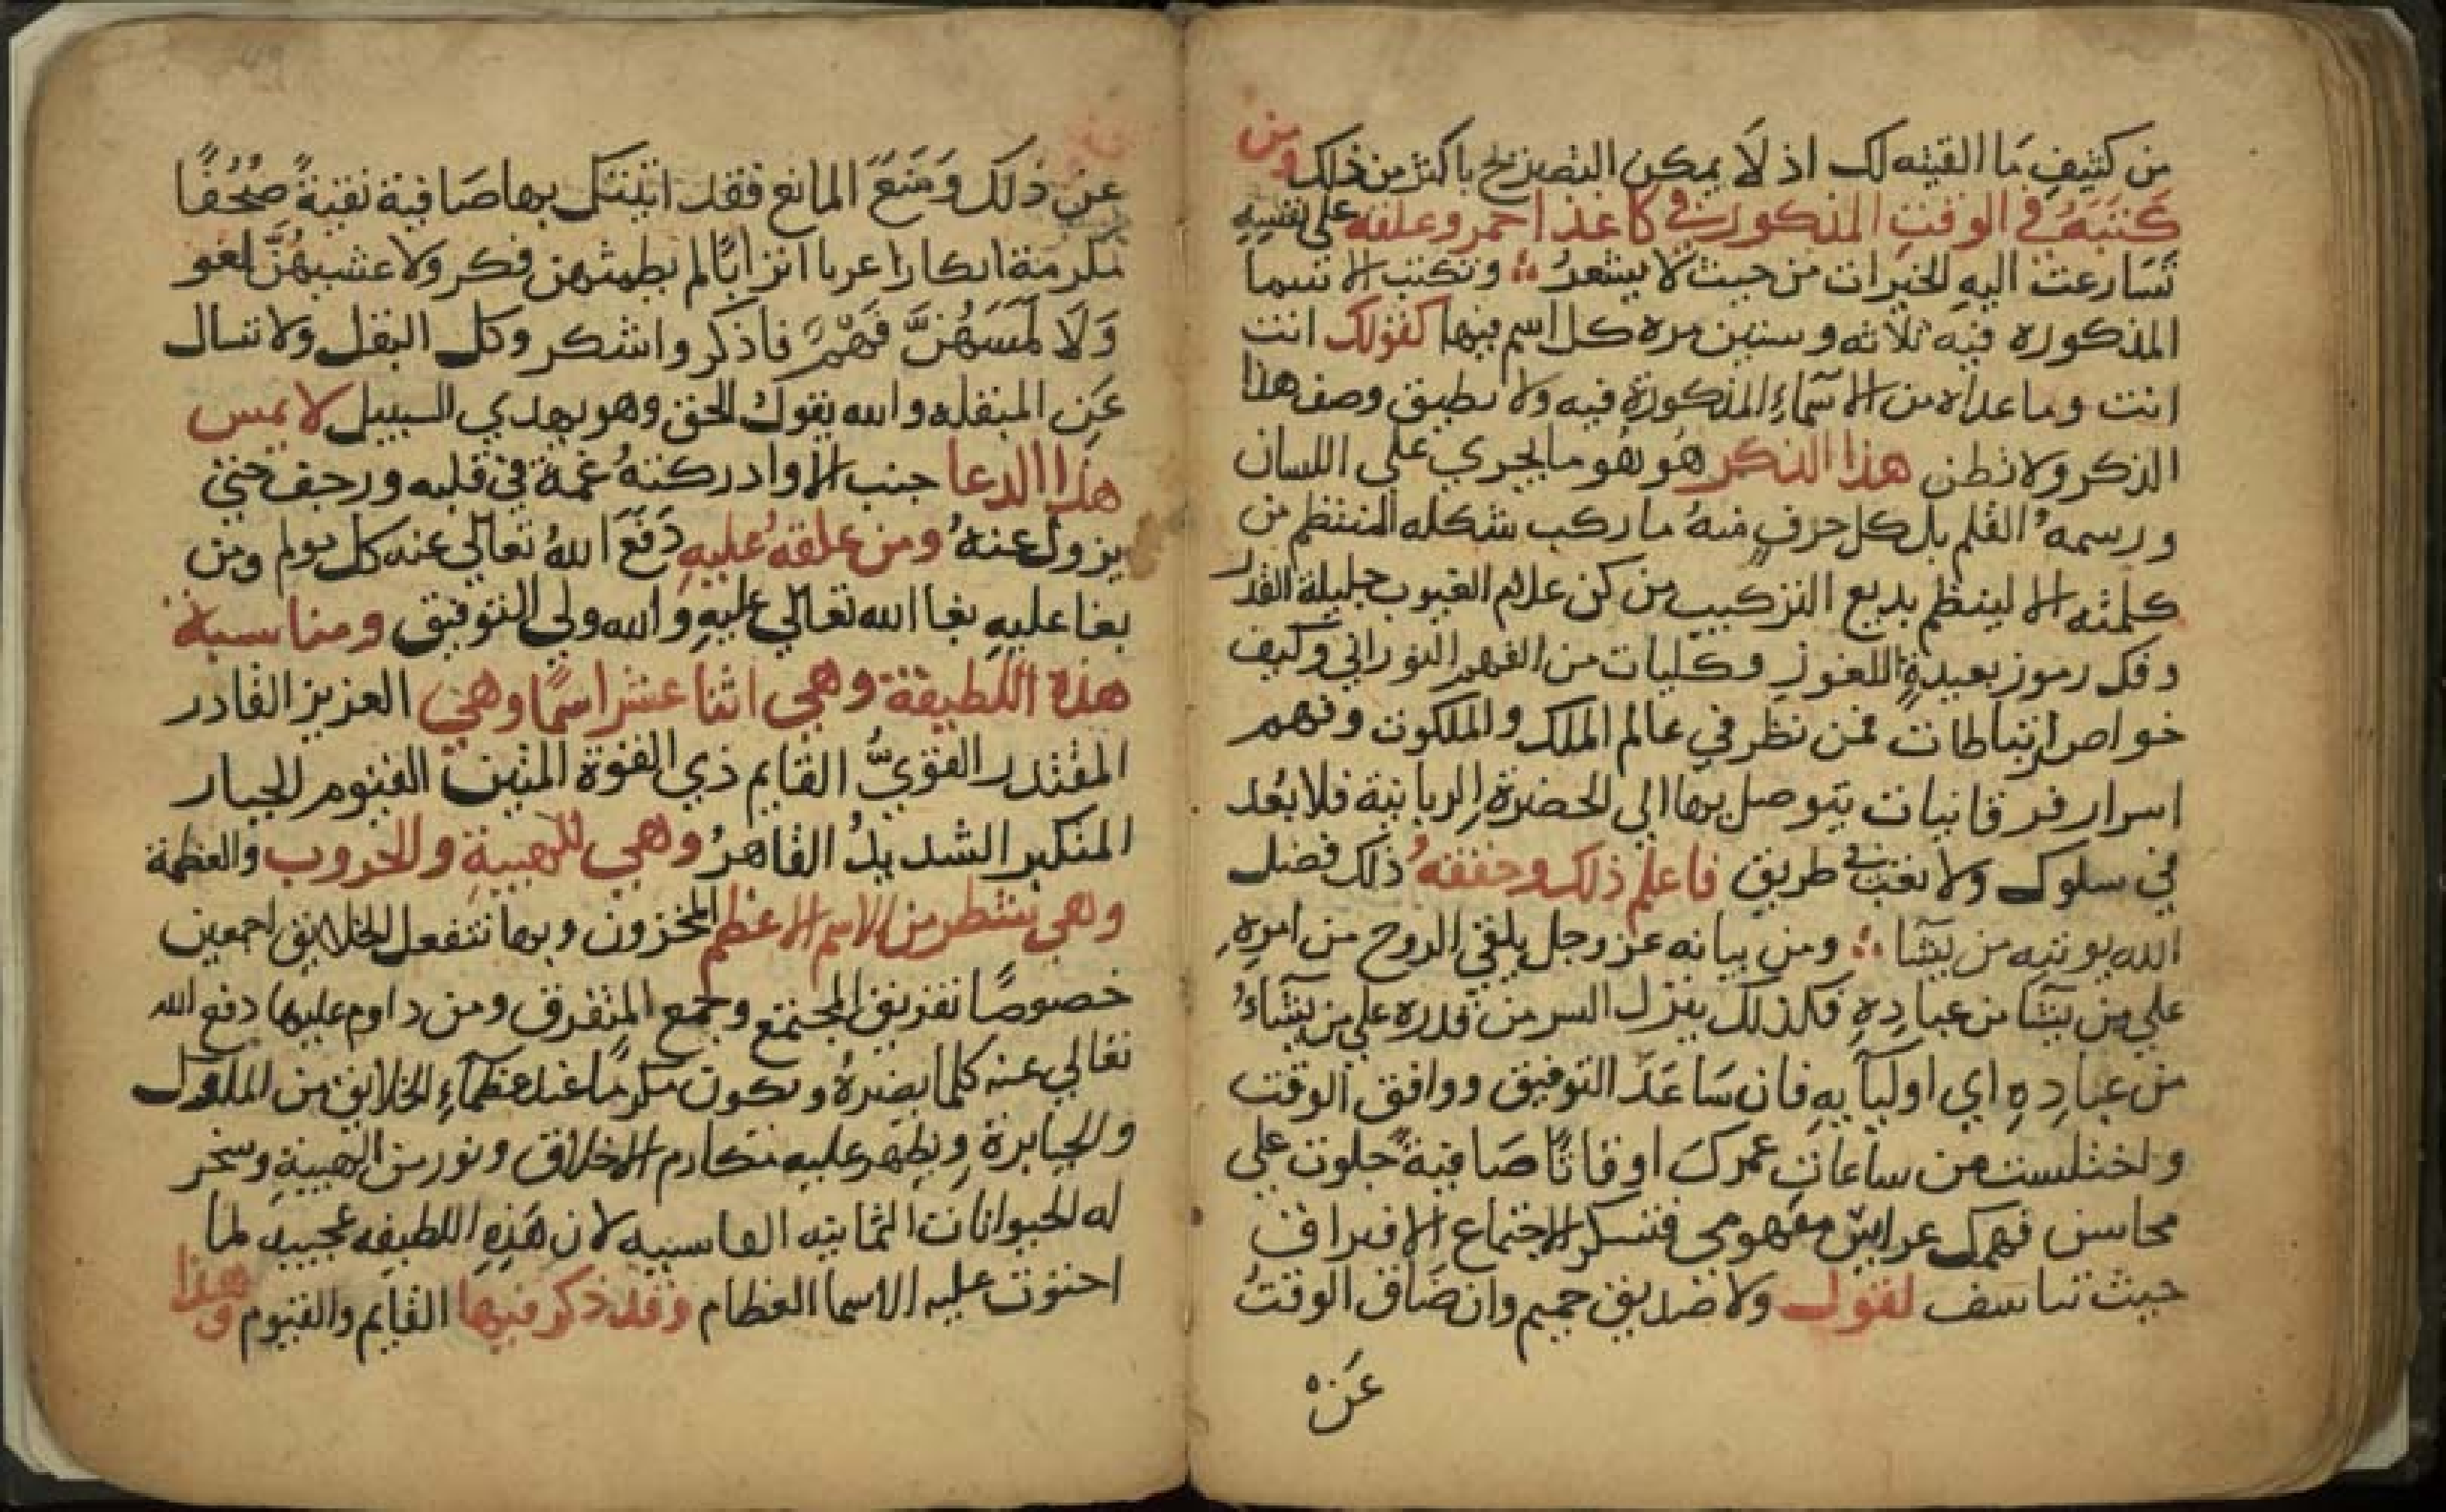 من كثيف ما القيته لك اذ لا يمكن التصريح باكثر من ذلك ومن
كتبه في الوقت المذكور في كاغذ احمر وعلقه على نفسه
تسارعت اليه الخيرات من حيث لا يشعر وتكتب الاسما
المذكوره فيه ثلاثه وستين مره كل اسم منها كقولك انت
انت وما عداه من الاسماء المذكورة فيه ولا نطيق وصف هذا
الذكر ولا تظن هذا الذكر هو هو ما يجري على اللسان
ورسمه القلم بل كل حرف منه ما ركب شكله المنتظم من
كلمته الا لينظم بديع التركيب من كن علام الغيوب جليلة القدر
وفك رموز بعيدة اللغوز وكليات من الفهم النوراني وكيف
خواص ارتباطات فمن نظر في عالم الملك والملكوت وفهم
اسرار فرقانيات يتوصل بها الى الحضرة الربانية فلا بعد
في سلوك ولا تعب في طريق فاعلم ذلك وحققه ذلك فضل
الله يوتيه من يشا ومن بيانه عز وجل يلقي الروح من امره
على من يشا من عباده فكذلك ينزل السر من قدره على من يشاء
من عباده اي اوليآيه فان ساعد التوفيق ووافق الوقت
واختلست من ساعات عمرك اوقاتا صافية جلوت على
محاسن فهمك عرايس مفهومي فتسكر الاجتماع الافتراق
حيث تتاسف لقول ولا صديق حميم وان ضاق الوقت
عن
عن ذلك ومنع المانع فقد اتيتك بها صافية نقية صحفا
مكرمة ابكارا عربا اترابا لم يطمثهن فكر ولا عشيهن لغو
ولا لمسهن فهم فاذكر واشكر وكل البقل ولا تسال
عن المبقله والله يقول الحق وهو يهدي السبيل لا يمس
هذا الدعا جنب الا وادركته غمة في قلبه ورجف حتى
يزول عنه ومن علقه عليه دفع الله تعالي عنه كل مولم ومن
بغا عليه بغا الله تعالي عليه والله ولي التوفيق ومناسبة
هذه اللطيفة وهي اثنا عشر اسما وهي العزيز القادر
المقتدر القوي القايم ذي القوة المتين القيوم الجبار
المتكبر الشديد القاهر وهي للهيبة والحروب والعظمة
وهي شطر من الاسم الاعظم المخزون وبها تنفعل الخلايق اجمعين
خصوصا تفريق المجتمع وجمع المتفرق ومن داوم عليها دفع الله
تعالي عنه كلما يضره ويكون مكرما عند عظماء الخلايق من الملوك
والجبابرة ويظهر عليه مكارم الاخلاق ونور من الهيبة وسخر
له الحيوانات القاسيه لان هذه اللطيفه عجيبه لما
احتوت عليه الاسما العظام وقد ذكر فيها القايم والقيوم وهذا